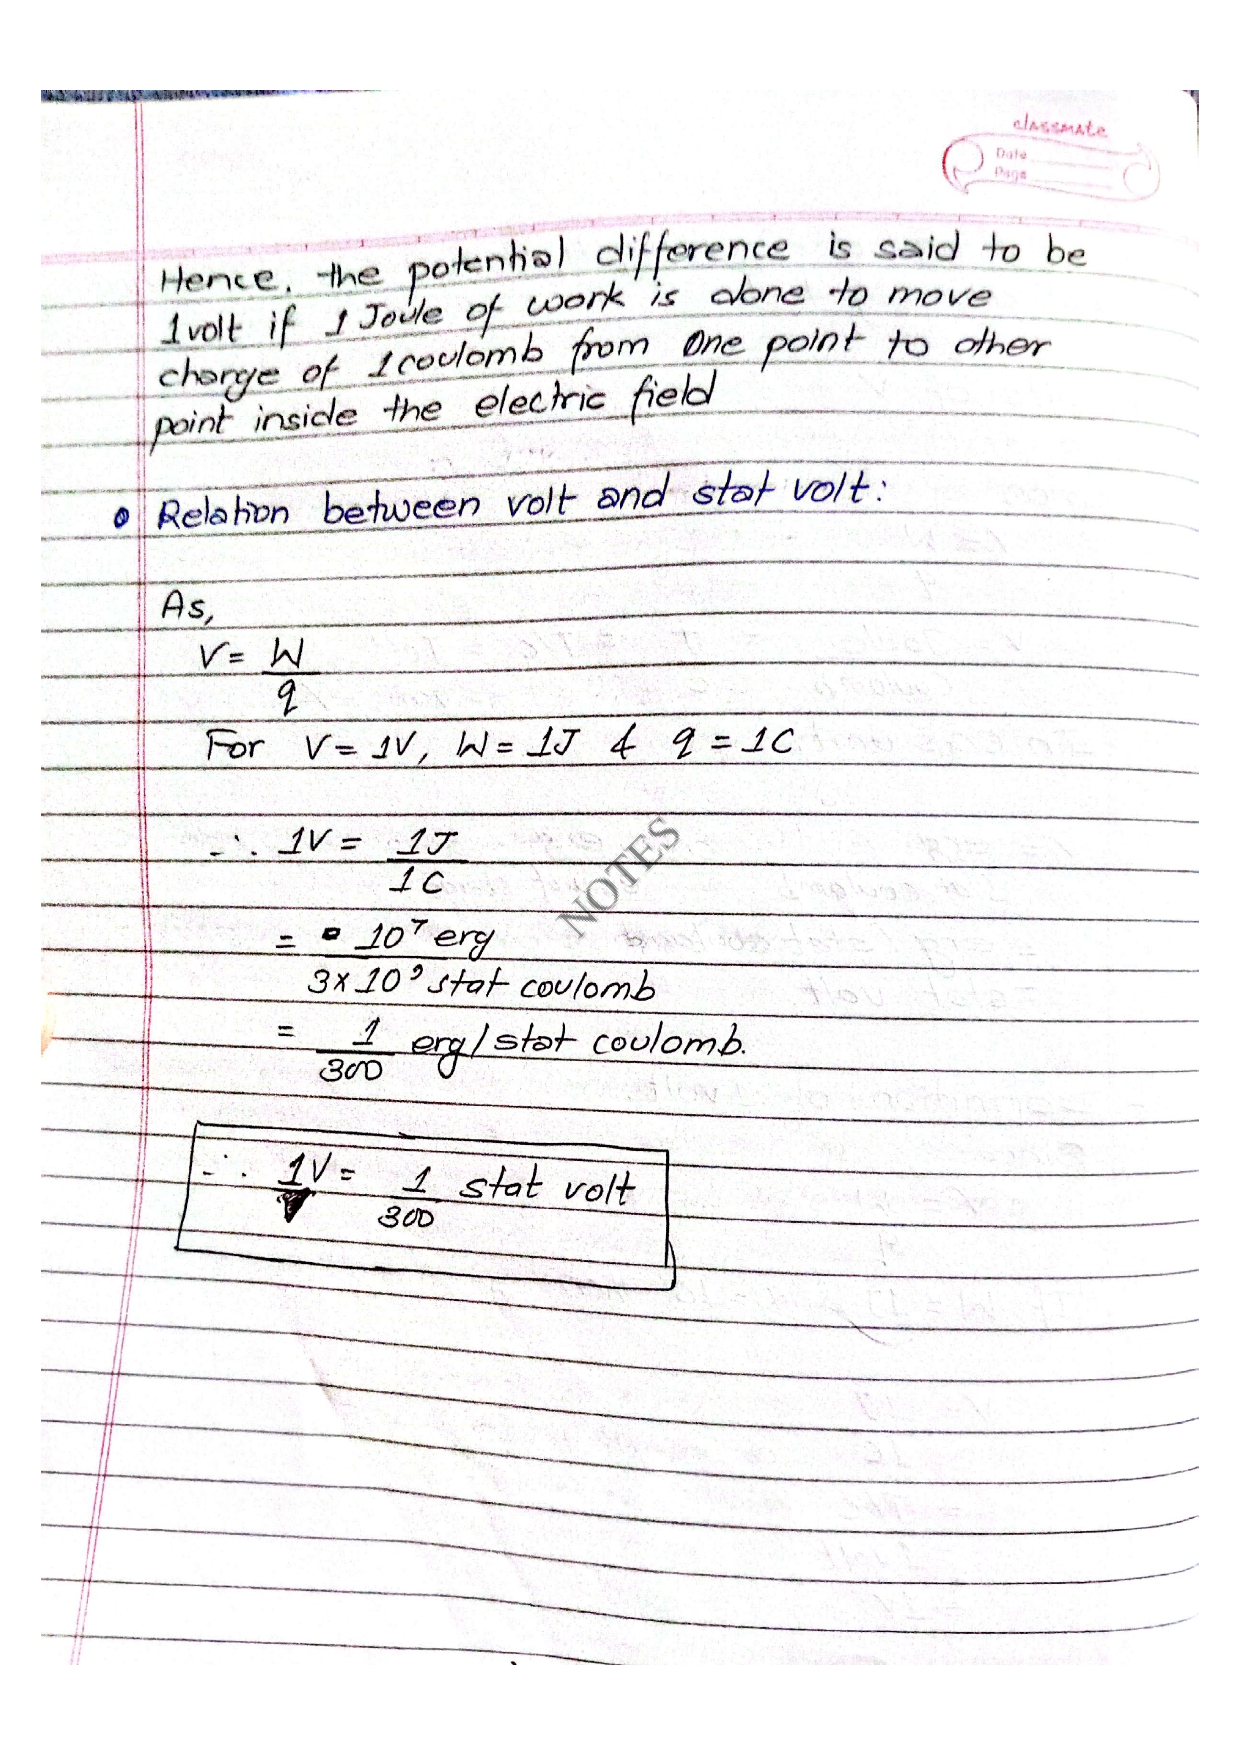 classmate
Date
Page
Hence, the potential difference is said to be
1volt if 1 Joule of work is done to move
charge of 1coulomb from One point to other
point inside the electric field
• Relation between volt and stat volt:
As,
V = W
q
For V = 1V, W = 1J & q = 1C
∴ 1V = 1J
1C
= 10⁷ erg
3×10⁹ stat coulomb
= 1 erg/stat coulomb.
300
∴ 1V = 1 stat volt
300
NOTES